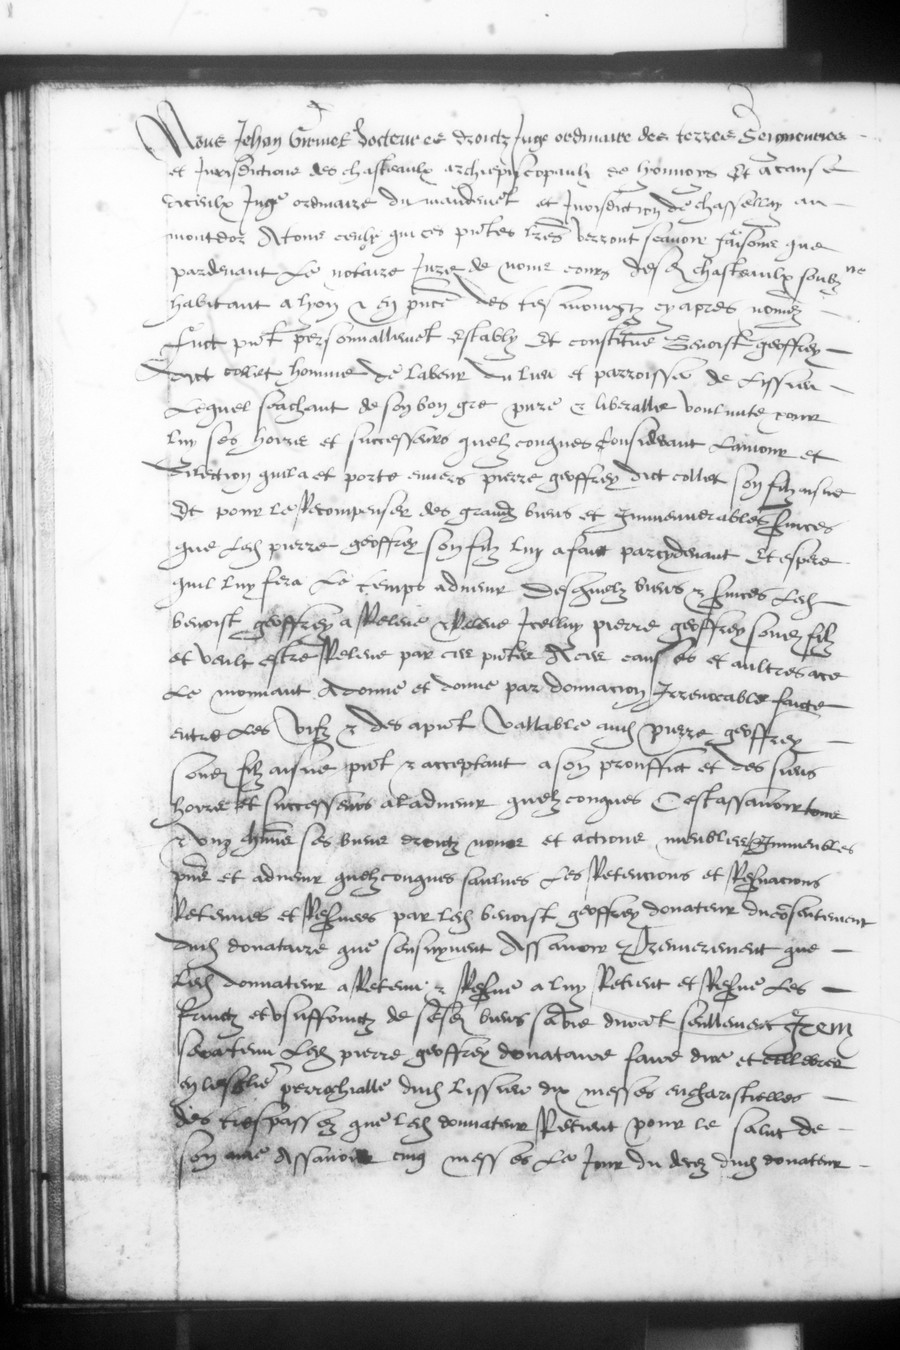 Nous Jehan Grinet docteur es droictz Juge ordinaire des terres Seigneuries
et Jurisdictions des chasteaulx archiepiscopaulx de lionnois Et a cause
diceulx Juge ordinaire du mandemt et Jurisdiction de chasselay au
montdor A tous ceulx qui ces pntes lres verront scavoir faisons que
pardevant Le notaire Jure de nous cours desd chasteaulx soubz ne
habitant a lyon & en pnce des tesmoingtz cy apres nomez
Fuct pnt personnallemet estably Et constitue Benoist geoffrey
dict collet homme de labeur du lieu et parroisse de Lissieu
Lequel saichant de son bon gre pure & liberalle voulunte pour
luy ses hoirs et successeurs quelzconques Considerant Lamour et
dilection quil a et porte envers pierre geoffrey dict collet son filz aisne
Et pour le Recompenser des grandz biens et Innumerables svices
que Led pierre geoffrey son filz luy a faict parcydevant Et espere
quil luy fera Le temps advenir desquelz biens & svices Led
benoist geoffrey a Releve & Releve Icelluy pierre geoffrey sond filz
et veult estre Releve par ces pntes A ces causes et aultres a ce
Le mouvant A donne et donne par donnacion Irrevocable faicte
entre Les vifz & des a pnt vallable aud pierre geoffrey
sond filz aisne pnt & acceptant a son prouffict et des siens
hoirs et successeurs a ladvenir quelzconques Cestassavoir tous
& ungchms ses biens droictz noms et actions meubles Immeubles
pns et advenir quelzconques saulves Les Retencions et Resvacions
Retenues et Resvees par led benoist geoffrey donateur du cosentement
dud donataire que sensuyvent Assavoir & Premierement que
Led donnateur a Retenu & Resve a luy Retient et Resve Les
fruictz et usuffruictz de sesd biens sa vie durat seullement Item
sera tenu Led pierre geoffrey donataire faire dire et cellebrer
en lesglise perrochialle dud Lissieu dix messes eucharistielles
des trespassez que led donnateur Retient pour le salut de
son ame Assavoir cinq messes Le Jour du decez dud donateur